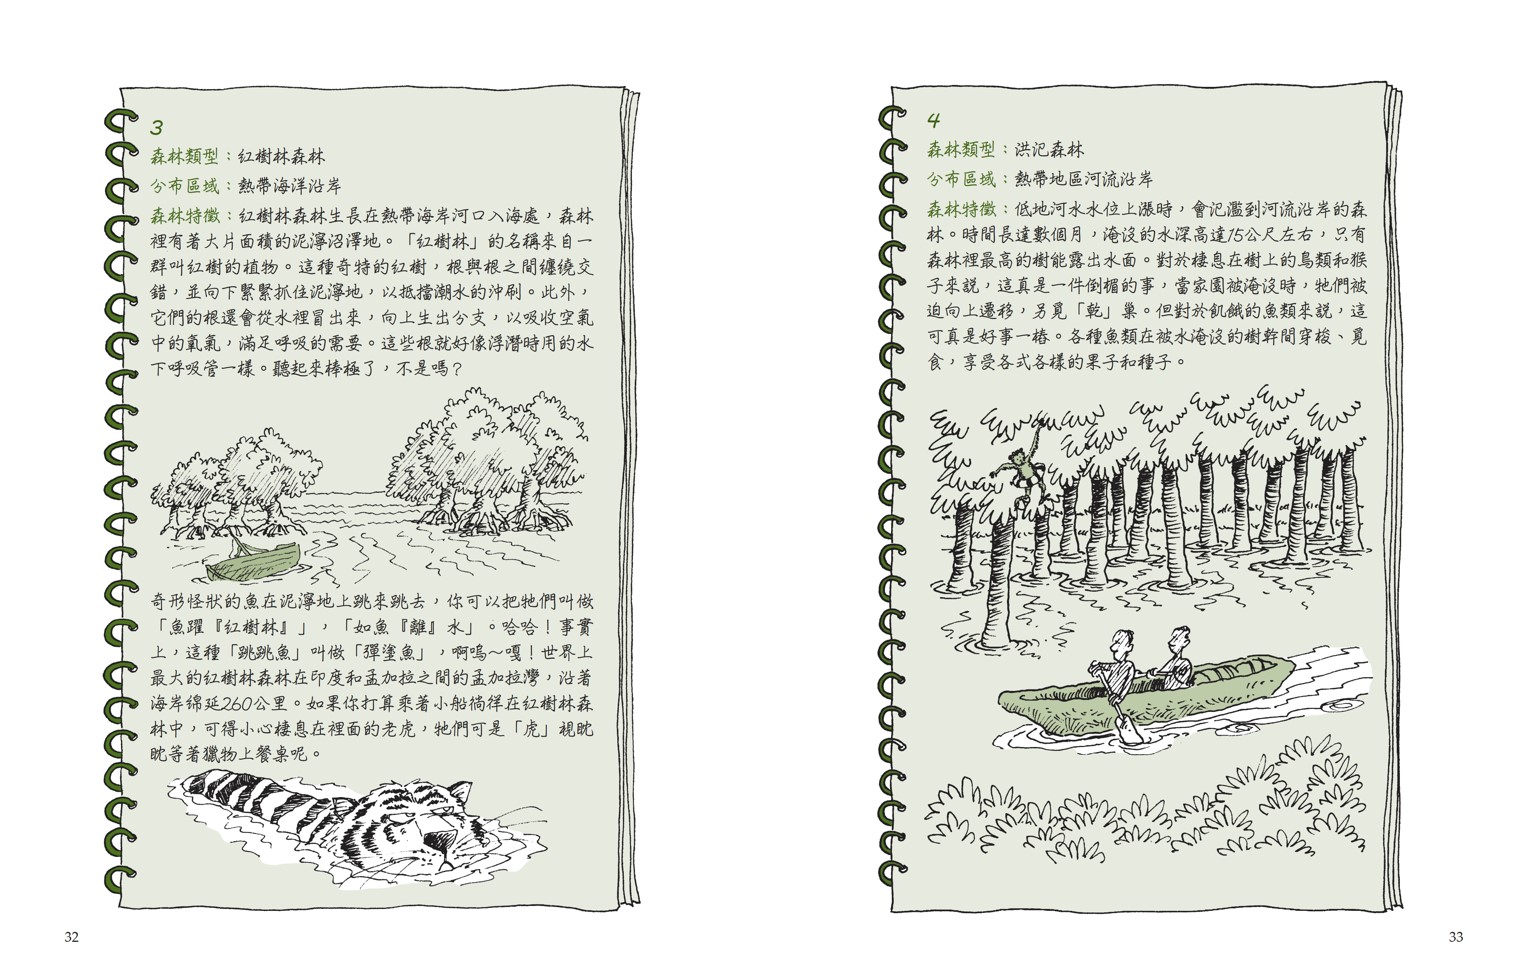 3
森林類型：紅樹林森林
分布區域：熱帶海洋沿岸
森林特徵：紅樹林森林生長在熱帶海岸河口入海處，森林
裡有著大片面積的泥濘沼澤地。「紅樹林」的名稱來自一
群叫紅樹的植物。這種奇特的紅樹，根與根之間纏繞交
錯，並向下緊緊抓住泥濘地，以抵擋潮水的沖刷。此外，
它們的根還會從水裡冒出來，向上生出分支，以吸收空氣
中的氧氣，滿足呼吸的需要。這些根就好像浮潛時用的水
下呼吸管一樣。聽起來棒極了，不是嗎？
奇形怪狀的魚在泥濘地上跳來跳去，你可以把牠們叫做
「魚躍『紅樹林』」，「如魚『離』水」。哈哈！事實
上，這種「跳跳魚」叫做「彈塗魚」，啊嗚～嘎！世界上
最大的紅樹林森林在印度和孟加拉之間的孟加拉灣，沿著
海岸綿延260公里。如果你打算乘著小船徜徉在紅樹林森
林中，可得小心棲息在裡面的老虎，牠們可是「虎」視眈
眈等著獵物上餐桌呢。
32
4
森林類型：洪氾森林
分布區域：熱帶地區河流沿岸
森林特徵：低地河水水位上漲時，會氾濫到河流沿岸的森
林。時間長達數個月，淹沒的水深高達15公尺左右，只有
森林裡最高的樹能露出水面。對於棲息在樹上的鳥類和猴
子來說，這真是一件倒楣的事，當家園被淹沒時，牠們被
迫向上遷移，另覓「乾」巢。但對於飢餓的魚類來說，這
可真是好事一樁。各種魚類在被水淹沒的樹幹間穿梭、覓
食，享受各式各樣的果子和種子。
33